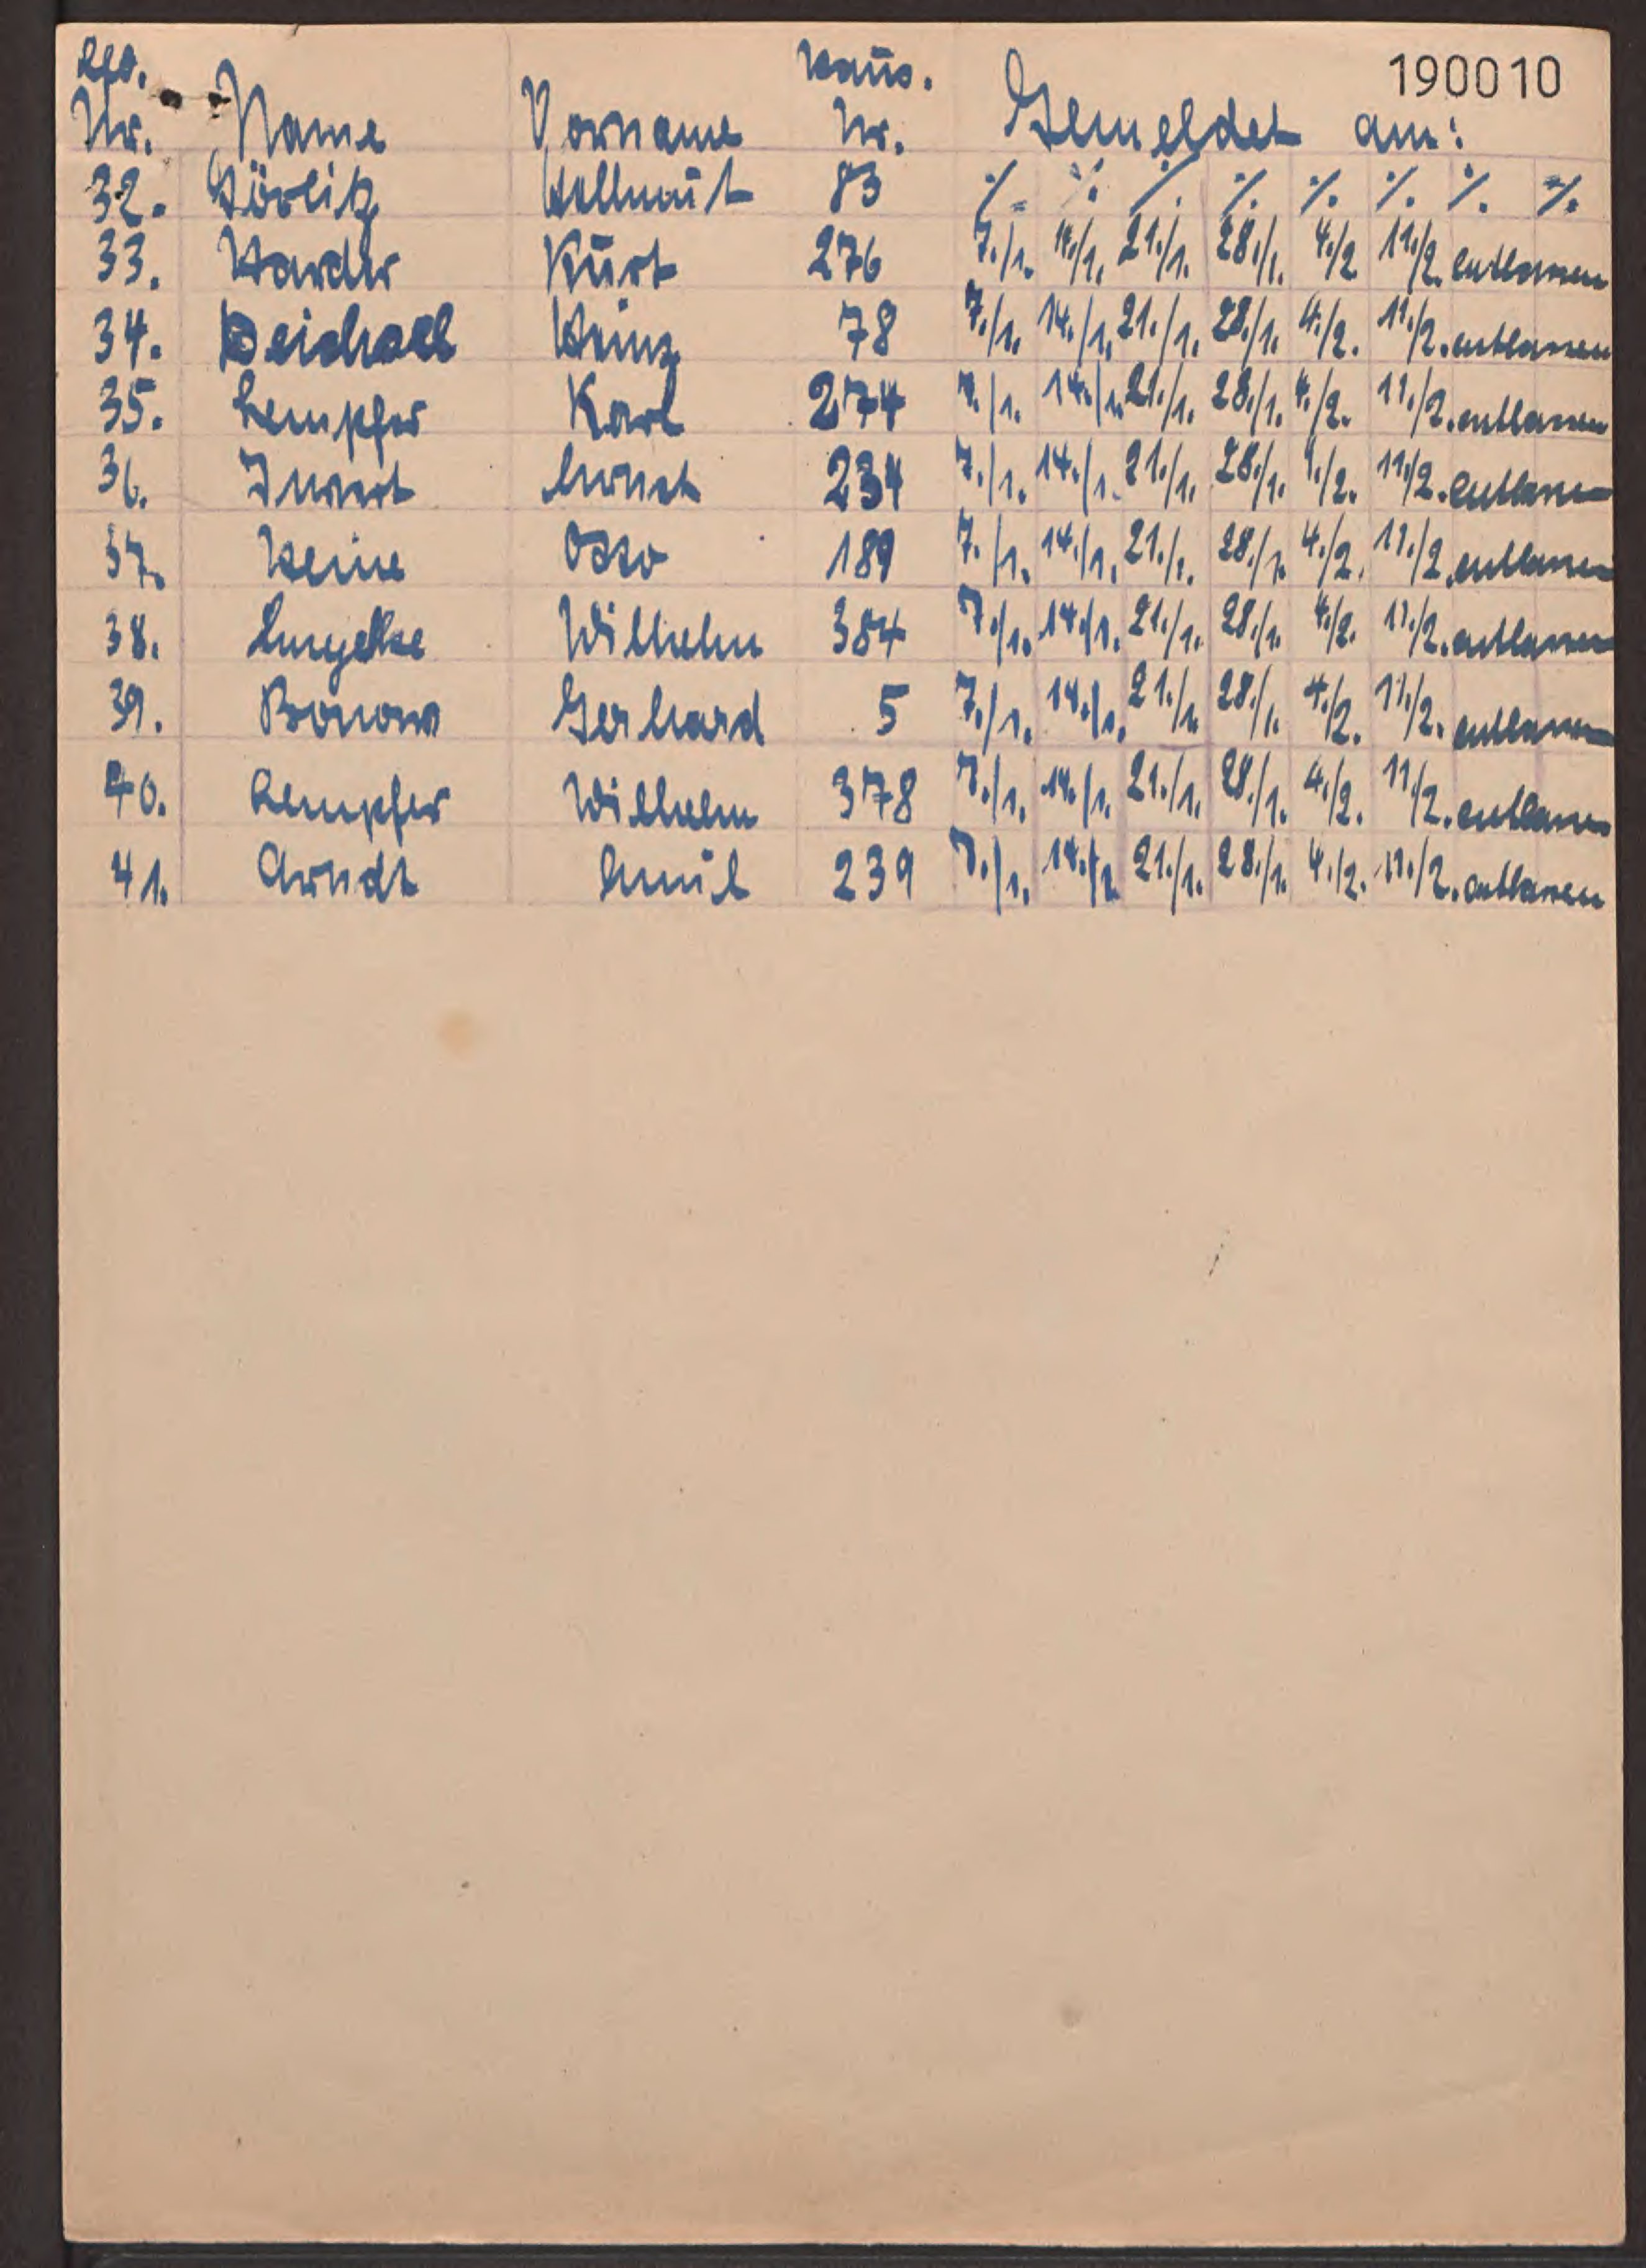 190010
Lfd. Haus.
Nr. Name Vorname Nr. Gemeldet am:
32. Görlitz Hellmut 83 ·/. ·/. ·/. ·/. ·/. ·/. ·/. ·/.
33. Harder Kurt 276 7./1. 14./1. 21./1. 28./1. 4./2 11./2. entlassen
34. Heinz 78 7./1. 14./1. 21./1. 28./1. 4./2. 11./2. entlassen
35. Lempfer Karl 274 7./1. 14./1. 21./1. 28./1. 4./2. 11./2. entlassen
36. Ernst 234 7./1. 14./1. 21./1. 28./1. 4./2. 11./2. entlassen
37. Heine Otto 189 7./1. 14./1. 21./1. 28./1. 4./2. 11./2. entlassen
38. Engelke Wilhelm 384 7./1. 14./1. 21./1. 28./1. 4./2. 11./2. entlassen
39. Bonow Gerhard 5 7./1. 14./1. 21./1. 28./1. 4./2. 11./2. entlassen
40. Lempfer Wilhelm 378 7./1. 14./1. 21./1. 28./1. 4./2. 11./2. entlassen
41. Arndt Emil 239 7./1. 14./1. 21./1. 28./1. 4./2. 11./2. entlassen